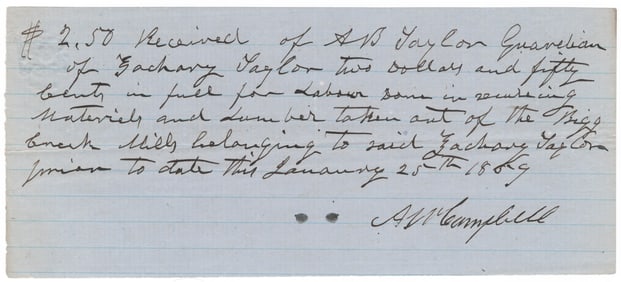 $ 2.50 Received of A B Taylor Guardian
of Zachary Taylor two Dollars and fifty
Cents in full for Labour Done in securing
Materiels and Lumber taken out of the Bigg
Creek Mills belonging to said Zachary Taylor
prior to date this Janaury 25th 1869
A McCampbell